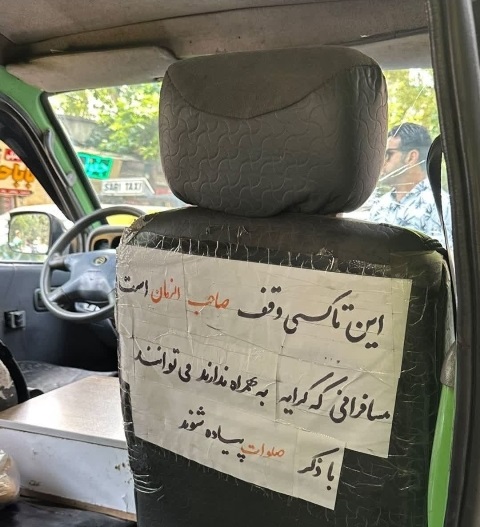 SARI TAXI
این تاکسی وقف صاحب الزمان است
مسافرانی که کرایه به همراه ندارند می توانند
با ذکر صلوات پیاده شوند